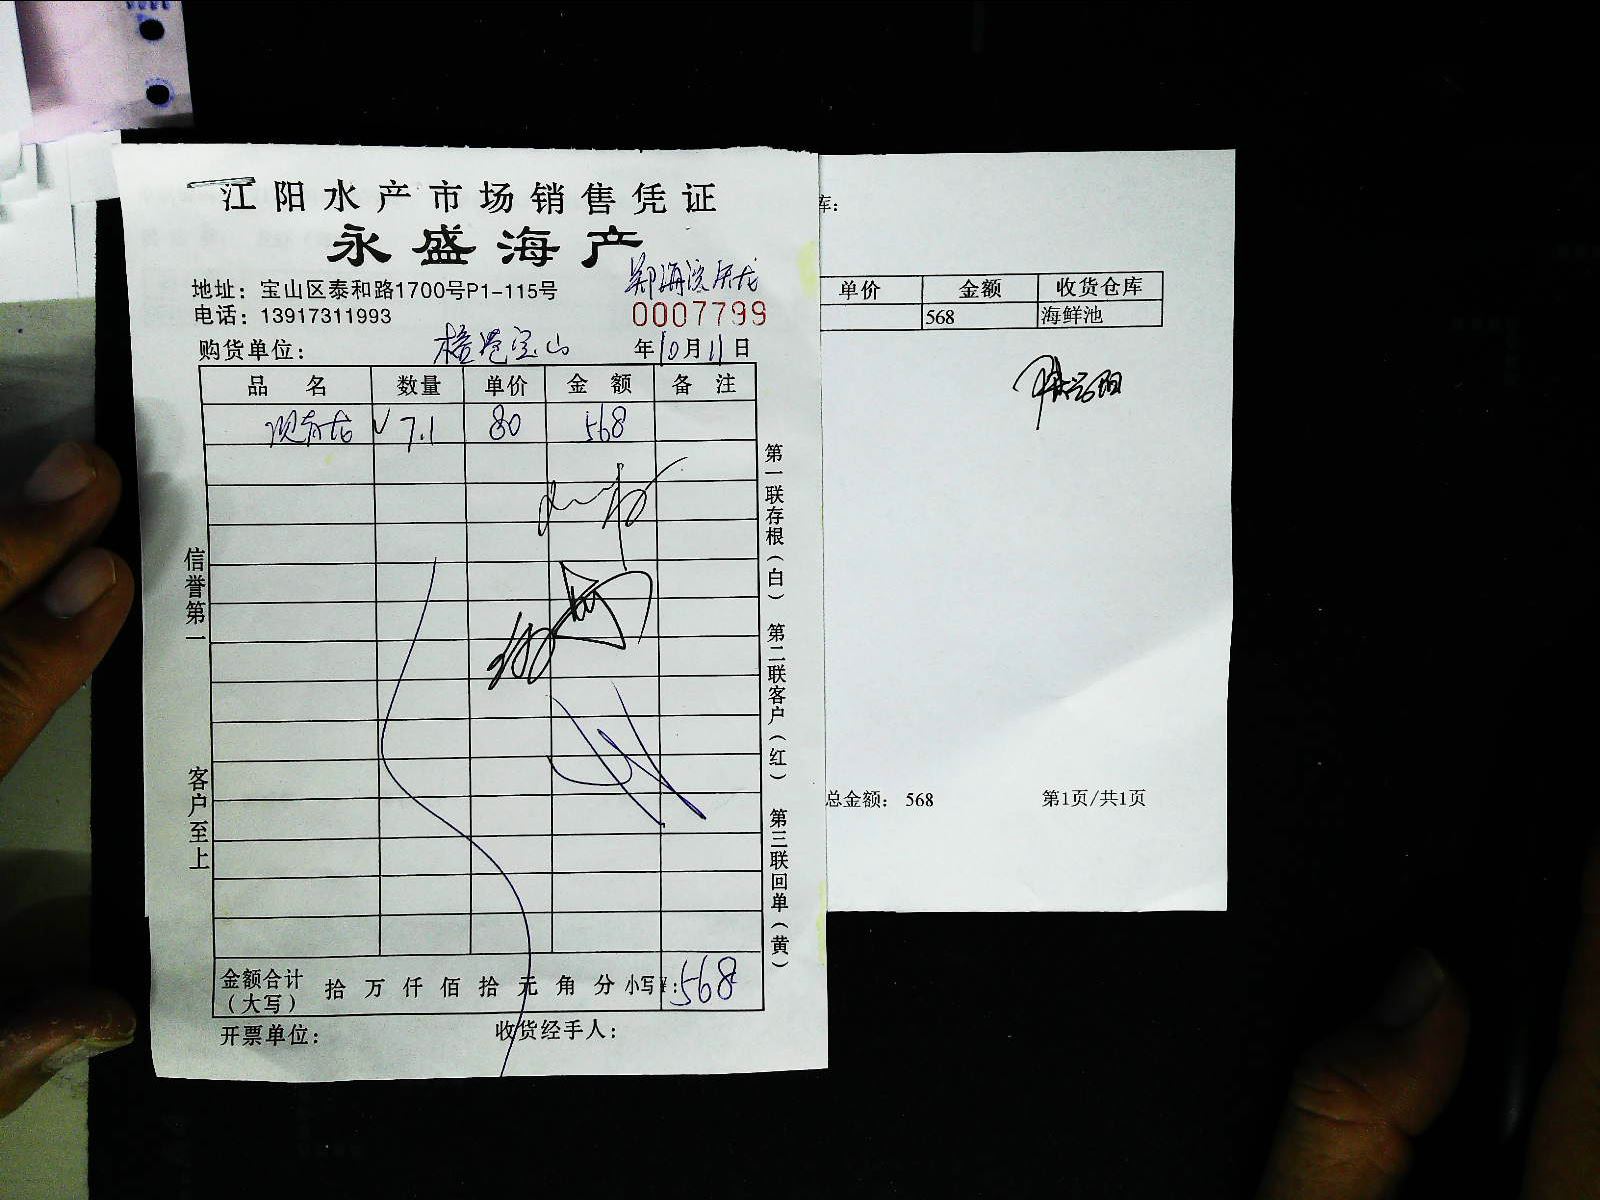 江阳水产市场销售凭证
永盛海产
地址：宝山区泰和路1700号P1-115号
电话：13917311993
0007799
购货单位： 宝山 年10月11日
品名 数量 单价 金额 备注
7.1 80 568
信誉第一
客户至上
第一联存根（白） 第二联客户（红） 第三联回单（黄）
金额合计（大写） 拾万仟佰拾元角分 小写¥：568
开票单位： 收货经手人：
库：
单价 金额 收货仓库
568 海鲜池
总金额： 568 第1页/共1页